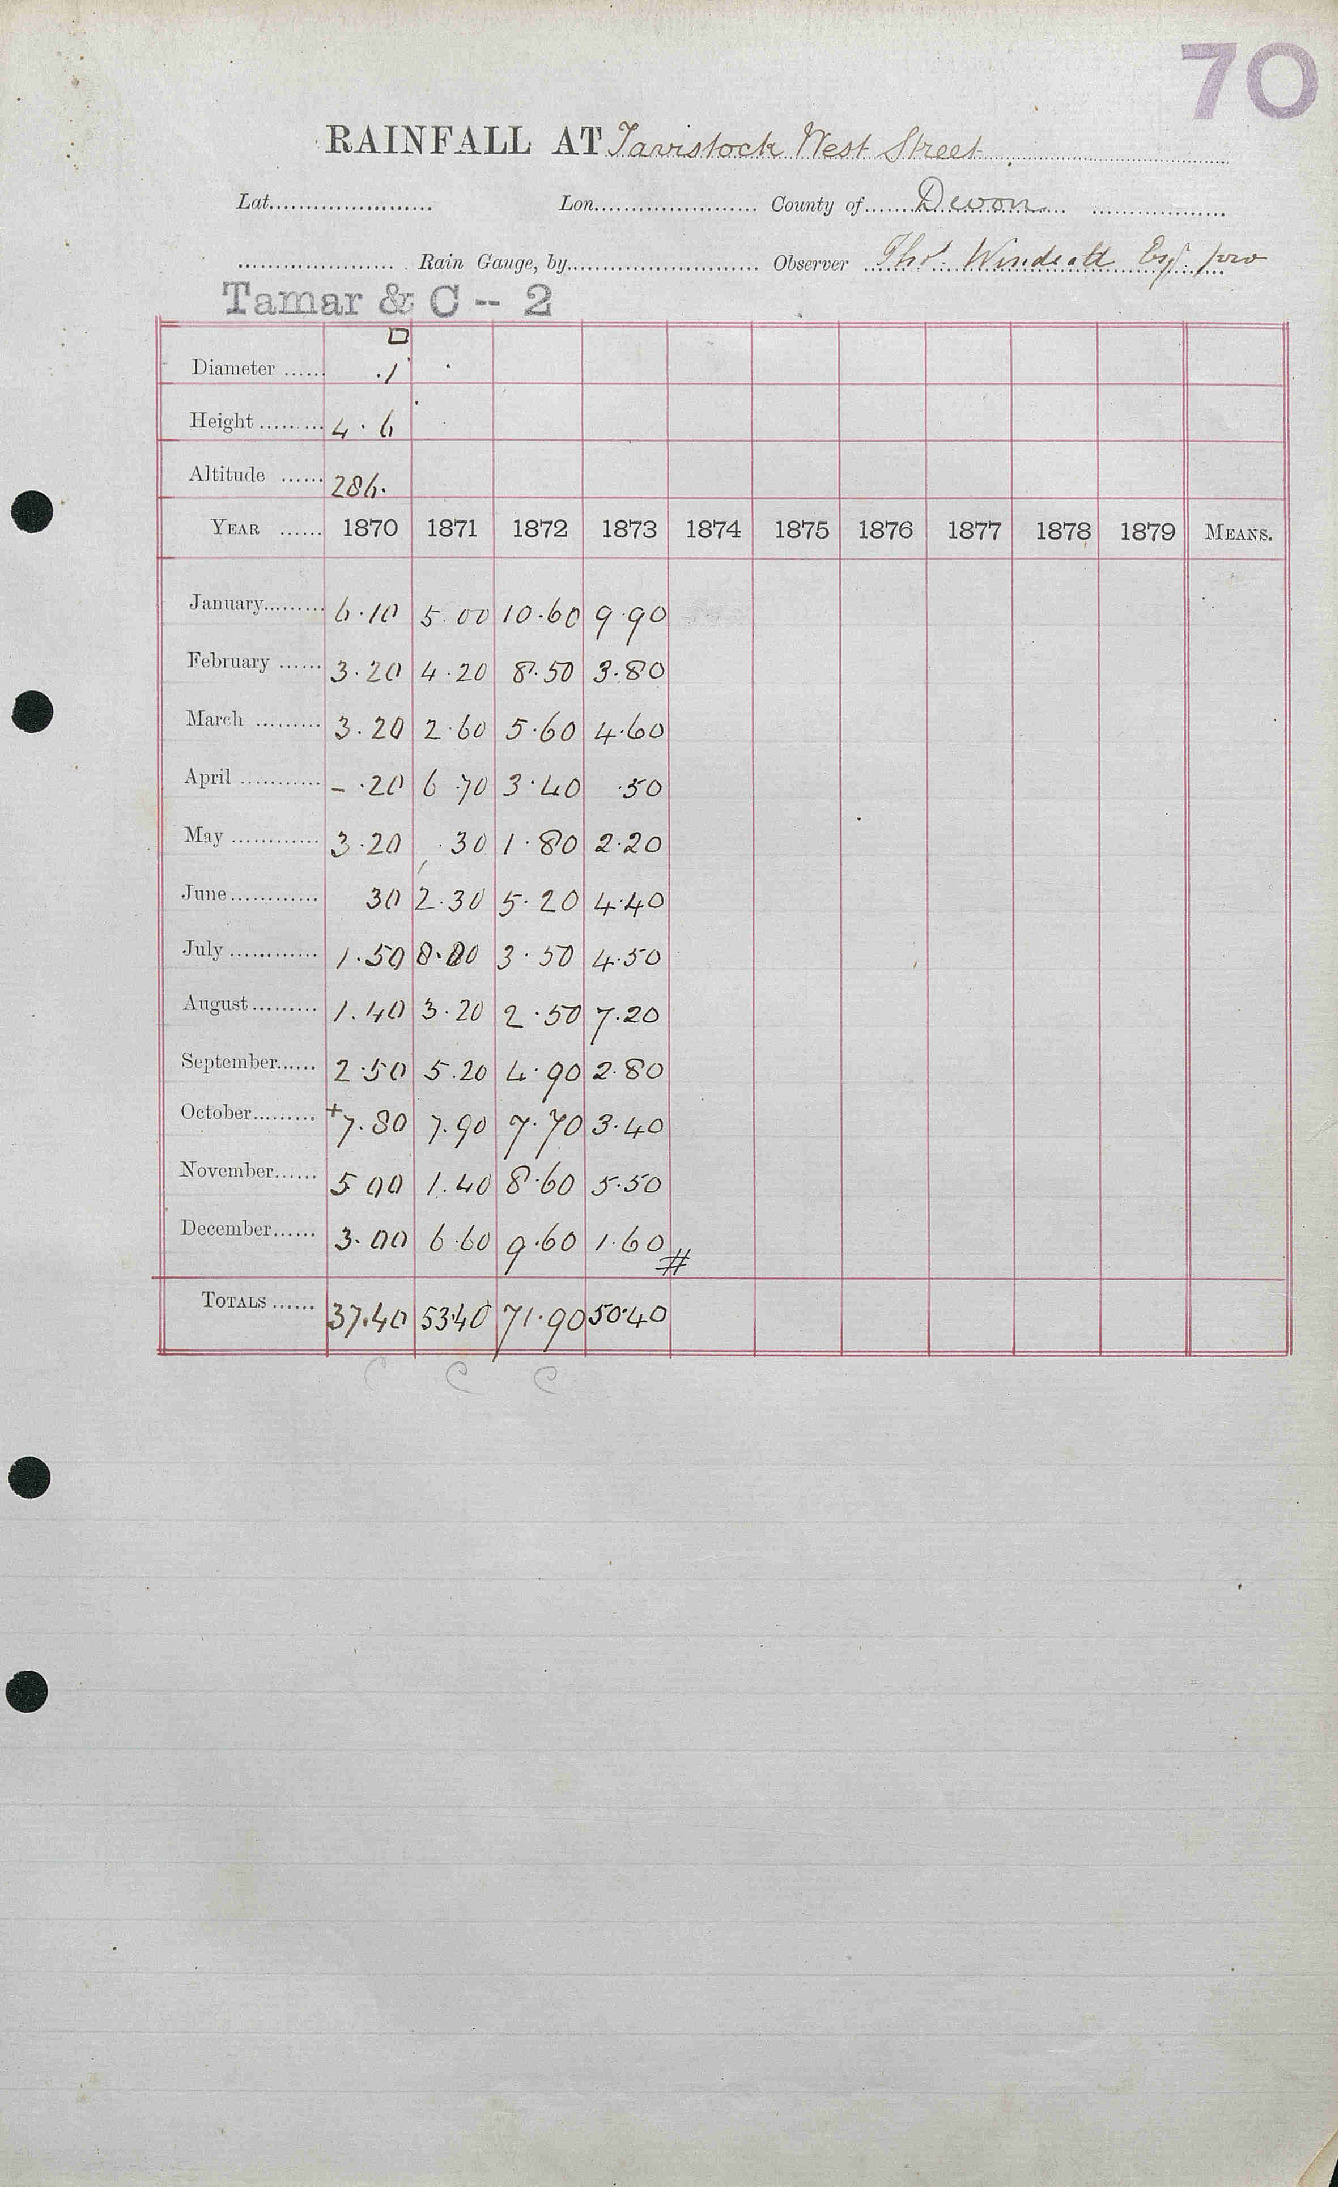 70
RAINFALL AT Tavistock West Street
Lat. Lon. County of Devon
Rain Gauge, by Observer Thos. Windeatt Esq.
Tamar & C -- 2
Diameter □ .1
Height 4.6
Altitude 286.
YEAR 1870 1871 1872 1873 1874 1875 1876 1877 1878 1879 MEANS.
January 6.10 5 00 10.60 9.90
February 3.20 4.20 8.50 3.80
March 3.20 2.60 5.60 4.60
April – .20 6 70 3.40 .50
May 3.20 .30 1.80 2.20
June 30 2.30 5.20 4.40
July 1.50 8.00 3.50 4.50
August 1.40 3.20 2.50 7.20
September 2.50 5.20 4.90 2.80
October +7.80 7.90 7.70 3.40
November 5 00 1.40 8.60 5.50
December 3.00 6.60 9.60 1.60 #
TOTALS 37.40 53.40 71.90 50.40
C C C